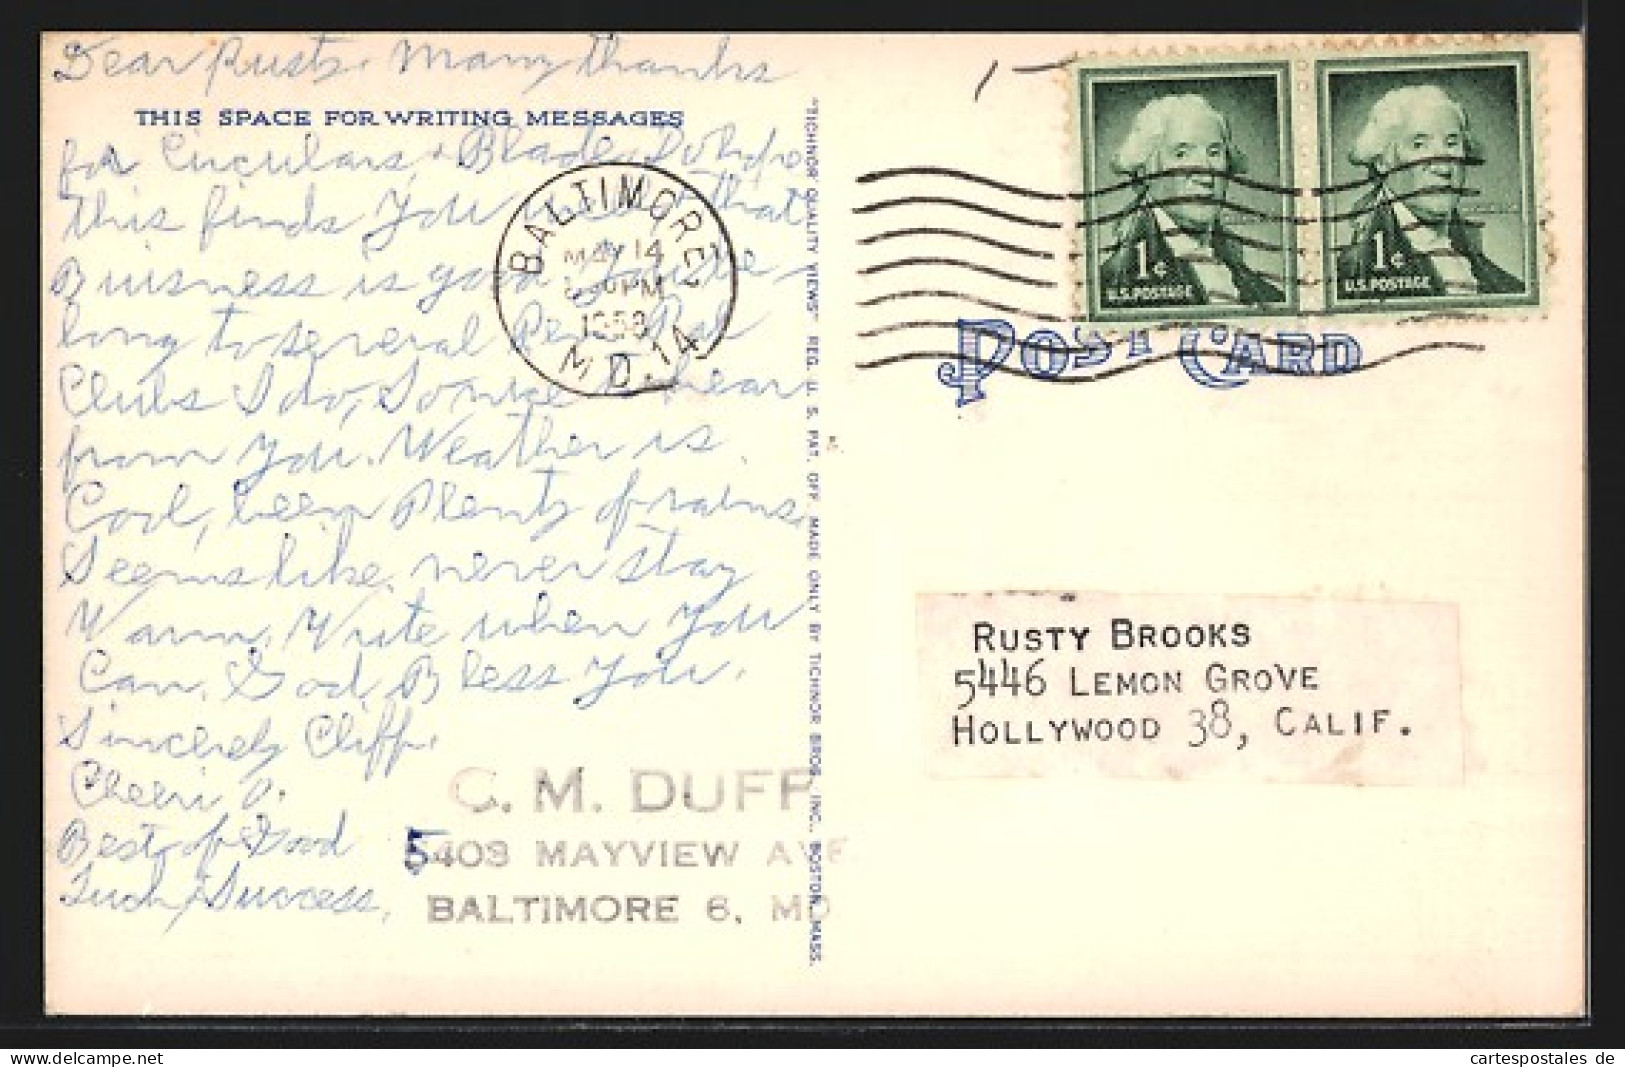 Dear Rusty. Many thanks
THIS SPACE FOR WRITING MESSAGES
for Circulars, & Blade. I
this finds You that
Buisness is good be-
long to several Pen Pal
Clubs I do, So nice to hear
from You. Weather is.
Cool, been Plenty of rains,
Seems like, never stay
Warm, Write when You
Can, God, Bless You.
Sincerely Cliff.
Cheeri O.
Best of Good
Luck, & Success,
C. M. DUFF
5403 MAYVIEW AVE
BALTIMORE 6, MD
BALTIMORE
MAY 14
PM
MD. 14
"TICHNOR QUALITY VIEWS" REG. U. S. PAT. OFF. MADE ONLY BY TICHNOR BROS., INC., BOSTON, MASS.
1¢
U.S. POSTAGE
1¢
U.S. POSTAGE
POST CARD
RUSTY BROOKS
5446 LEMON GROVE
HOLLYWOOD 38, CALIF.
https://www.delcampe.net
cartespostales de